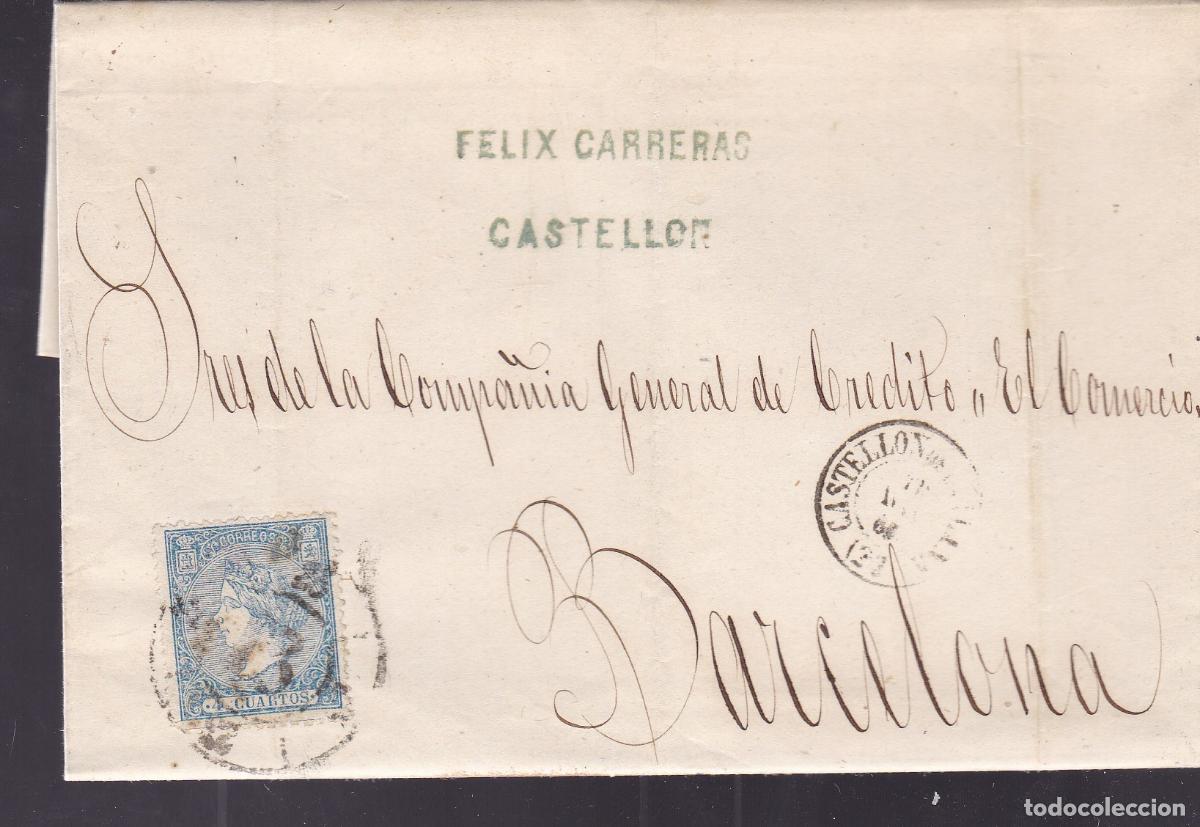 FELIX CARRERAS
CASTELLON
Sres de la Compañia General de Credito „El Comercio„
CASTELLON
CORREOS
4 CUARTOS
Barcelona
todocoleccion